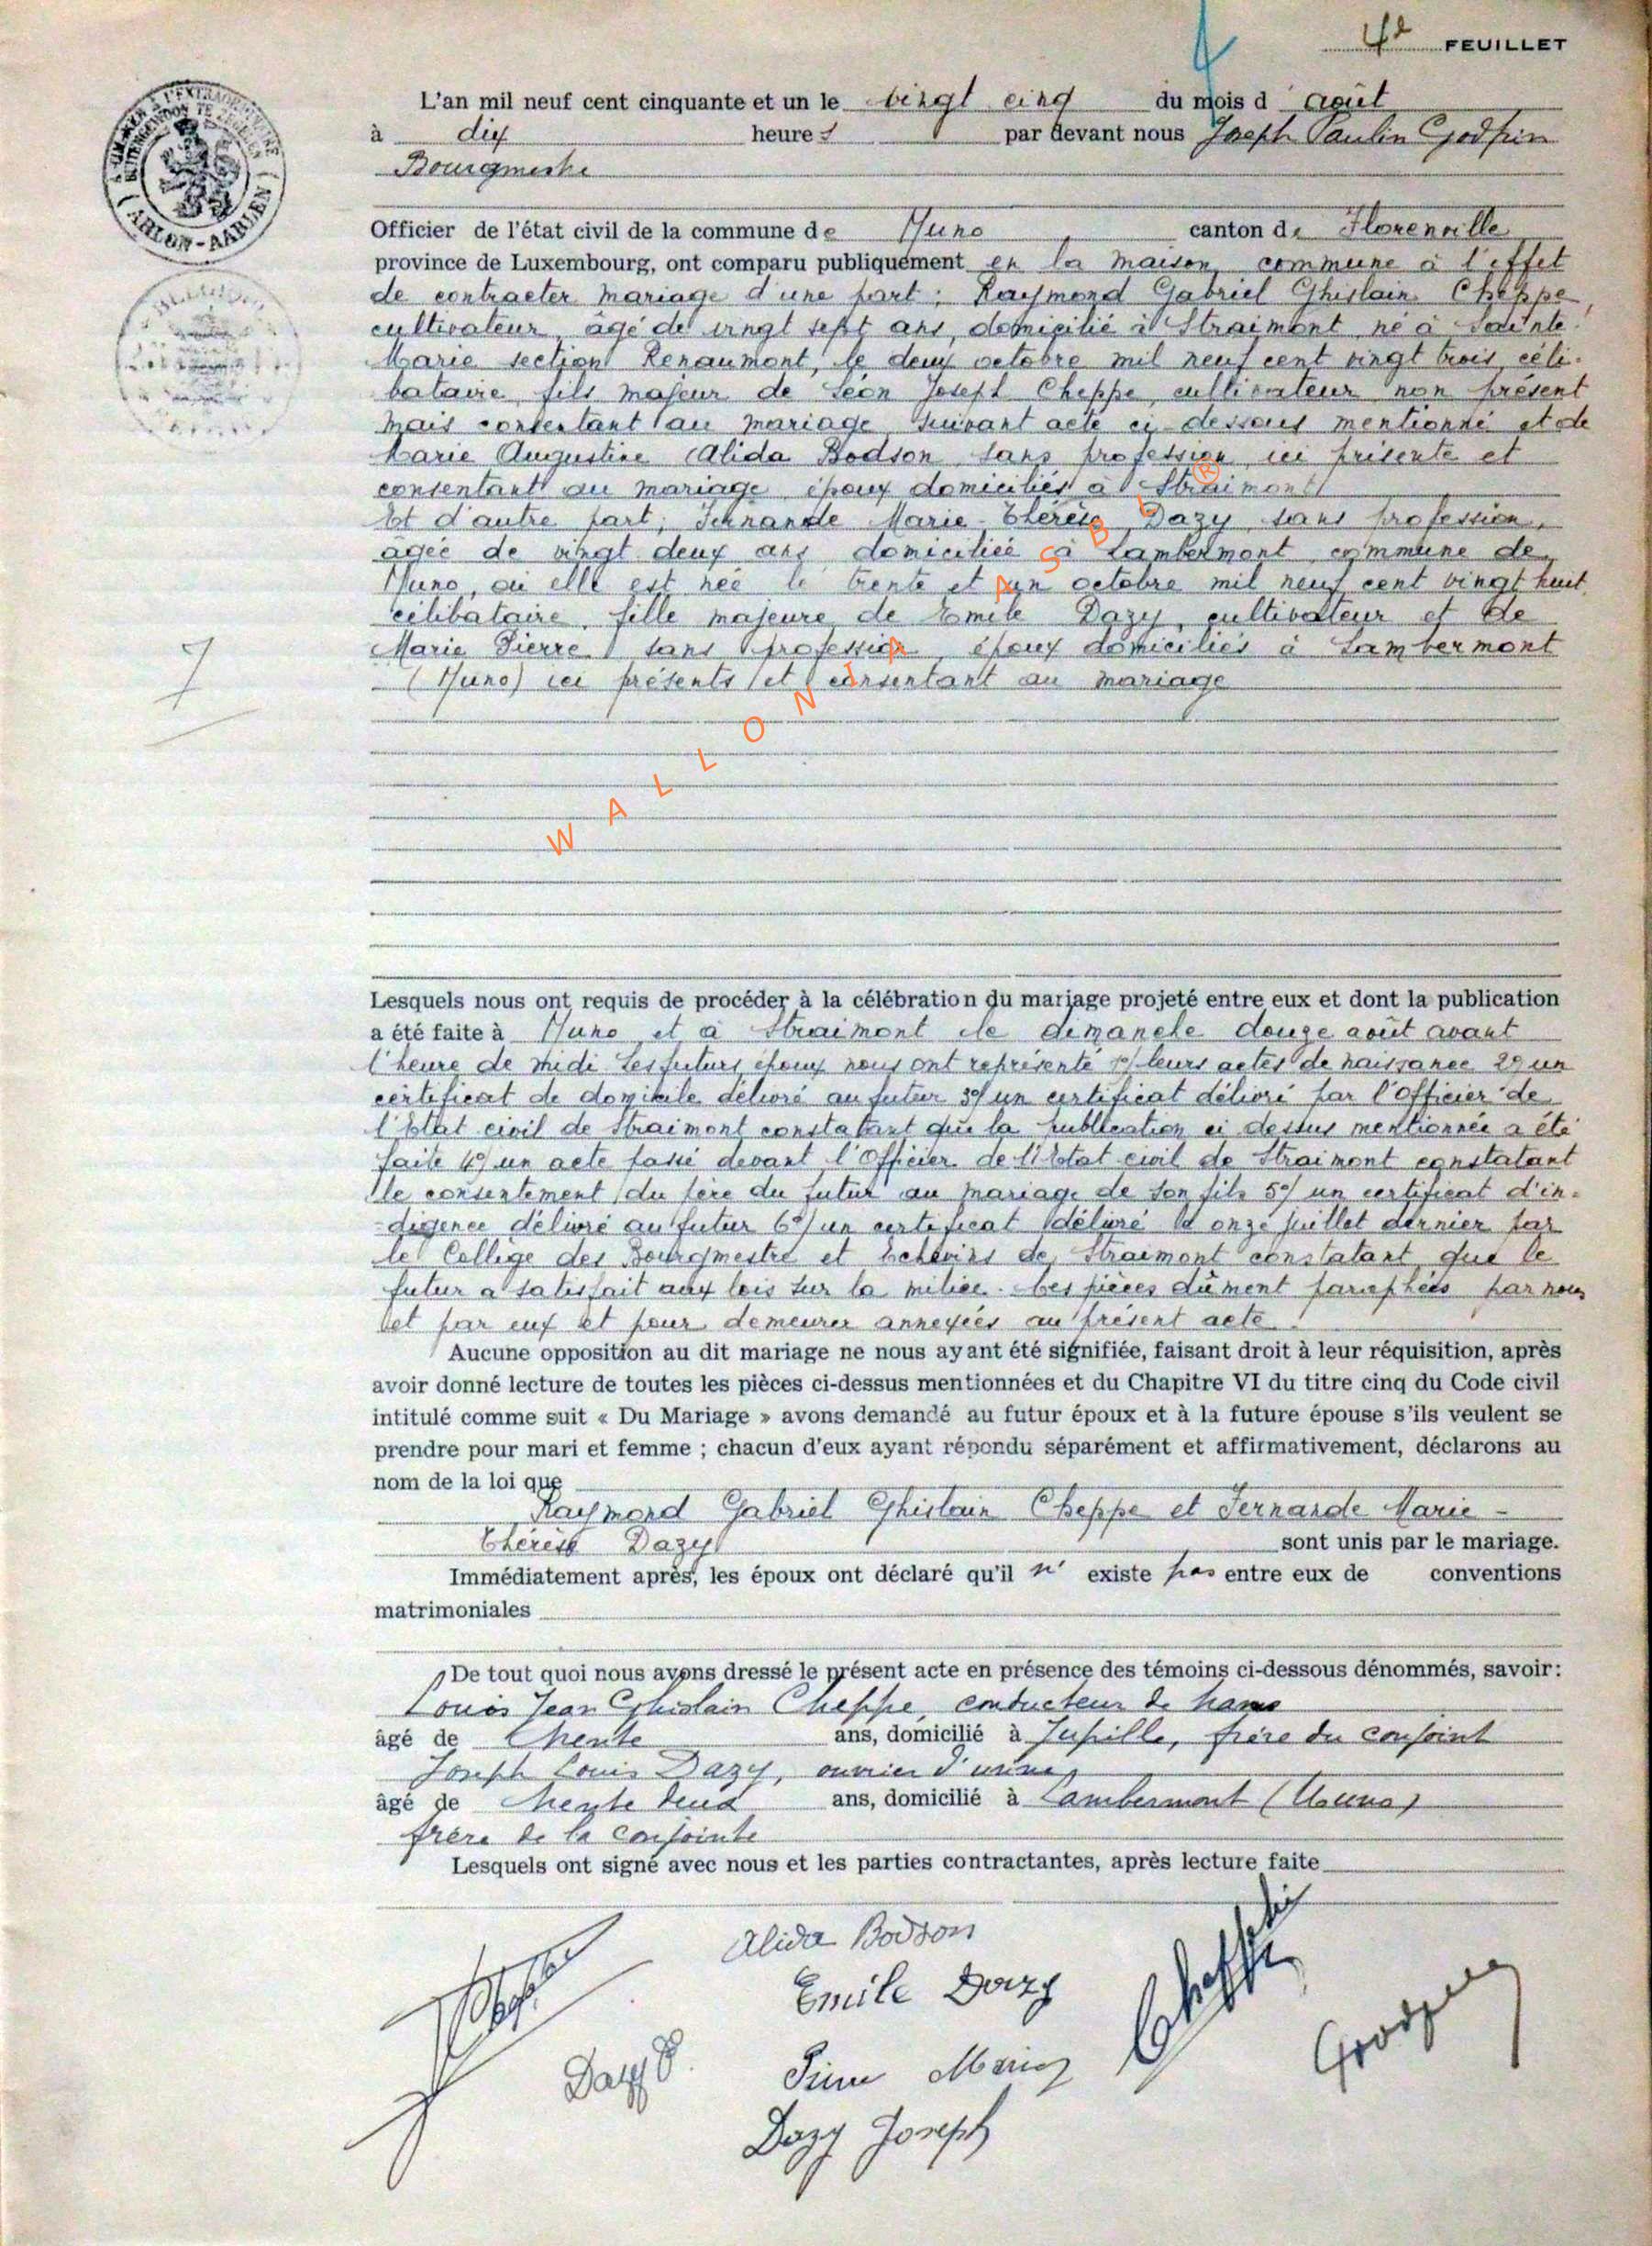 4e FEUILLET
L'an mil neuf cent cinquante et un le vingt cinq du mois d' août
à dix heures par devant nous Joseph Paulin Godfrin
Bourgmestre
Officier de l'état civil de la commune de Muno canton de Florenville
province de Luxembourg, ont comparu publiquement en la maison commune à l'effet
de contracter mariage d'une part; Raymond Gabriel Ghislain Cheppe,
cultivateur âgé de vingt sept ans, domicilié à Straimont né à Sainte-
Marie section Renaumont, le deux octobre mil neuf cent vingt trois, céli-
bataire, fils majeur de Léon Joseph Cheppe, cultivateur non présent
mais consentant au mariage suivant acte ci-dessous mentionné et de
Marie Augustine Alida Bodson sans profession ici présente et
consentant au mariage, époux domiciliés à Straimont
Et d'autre part; Fernande Marie-Thérèse Dazy sans profession,
âgée de vingt deux ans domiciliée à Lambermont commune de
Muno, où elle est née le trente et un octobre mil neuf cent vingt huit
célibataire, fille majeure de Emile Dazy, cultivateur et de
Marie Pierre sans profession, époux domiciliés à Lambermont
(Muno) ici présents et consentant au mariage
7
WALLONIA ASBL ®
Lesquels nous ont requis de procéder à la célébration du mariage projeté entre eux et dont la publication
a été faite à Muno et à Straimont le dimanche douze août avant
l'heure de midi Les futurs époux nous ont représenté 1°/ leurs actes de naissance 2°/ un
certificat de domicile délivré au futur 3°/ un certificat délivré par l'Officier de
l'Etat civil de Straimont constatant que la publication ci dessus mentionnée a été
faite 4°/ un acte passé devant l'Officier de l'Etat civil de Straimont constatant
le consentement du père du futur au mariage de son fils 5°/ un certificat d'in-
digence délivré au futur 6°/ un certificat délivré le onze juillet dernier par
le Collège des Bourgmestre et Echevins de Straimont constatant que le
futur a satisfait aux lois sur la milice. Ces pièces dûment paraphées par nous
et par eux et pour demeurer annexées au présent acte.
Aucune opposition au dit mariage ne nous ayant été signifiée, faisant droit à leur réquisition, après
avoir donné lecture de toutes les pièces ci-dessus mentionnées et du Chapitre VI du titre cinq du Code civil
intitulé comme suit « Du Mariage » avons demandé au futur époux et à la future épouse s'ils veulent se
prendre pour mari et femme ; chacun d'eux ayant répondu séparément et affirmativement, déclarons au
nom de la loi que
Raymond Gabriel Ghislain Cheppe et Fernande Marie-
Thérèse Dazy sont unis par le mariage.
Immédiatement après, les époux ont déclaré qu'il n' existe pas entre eux de conventions
matrimoniales
De tout quoi nous avons dressé le présent acte en présence des témoins ci-dessous dénommés, savoir:
Louis Jean Ghislain Cheppe, conducteur de trams
âgé de trente ans, domicilié à Jupille, frère du conjoint
Joseph Louis Dazy, ouvrier d'usine,
âgé de trente deux ans, domicilié à Lambermont (Muno)
frère de la conjointe
Lesquels ont signé avec nous et les parties contractantes, après lecture faite
Alida Bodson
Emile Dazy
Dazy F.
Pierre Marie
Cheppe
Godfrin
Dazy Joseph